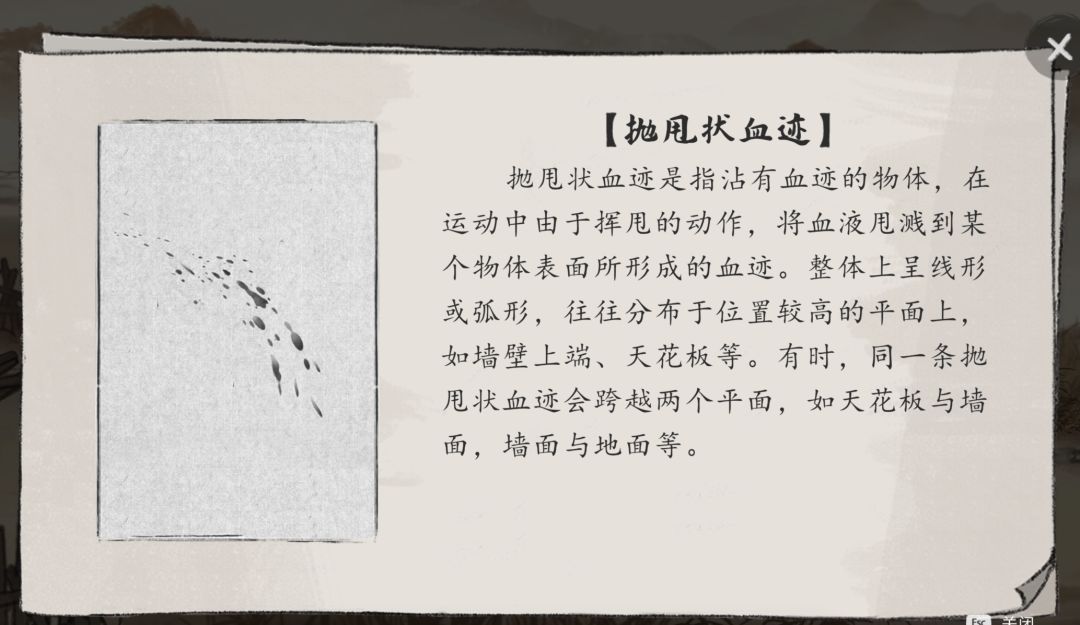 【抛甩状血迹】
抛甩状血迹是指沾有血迹的物体，在
运动中由于挥甩的动作，将血液甩溅到某
个物体表面所形成的血迹。整体上呈线形
或弧形，往往分布于位置较高的平面上，
如墙壁上端、天花板等。有时，同一条抛
甩状血迹会跨越两个平面，如天花板与墙
面，墙面与地面等。
Esc 关闭